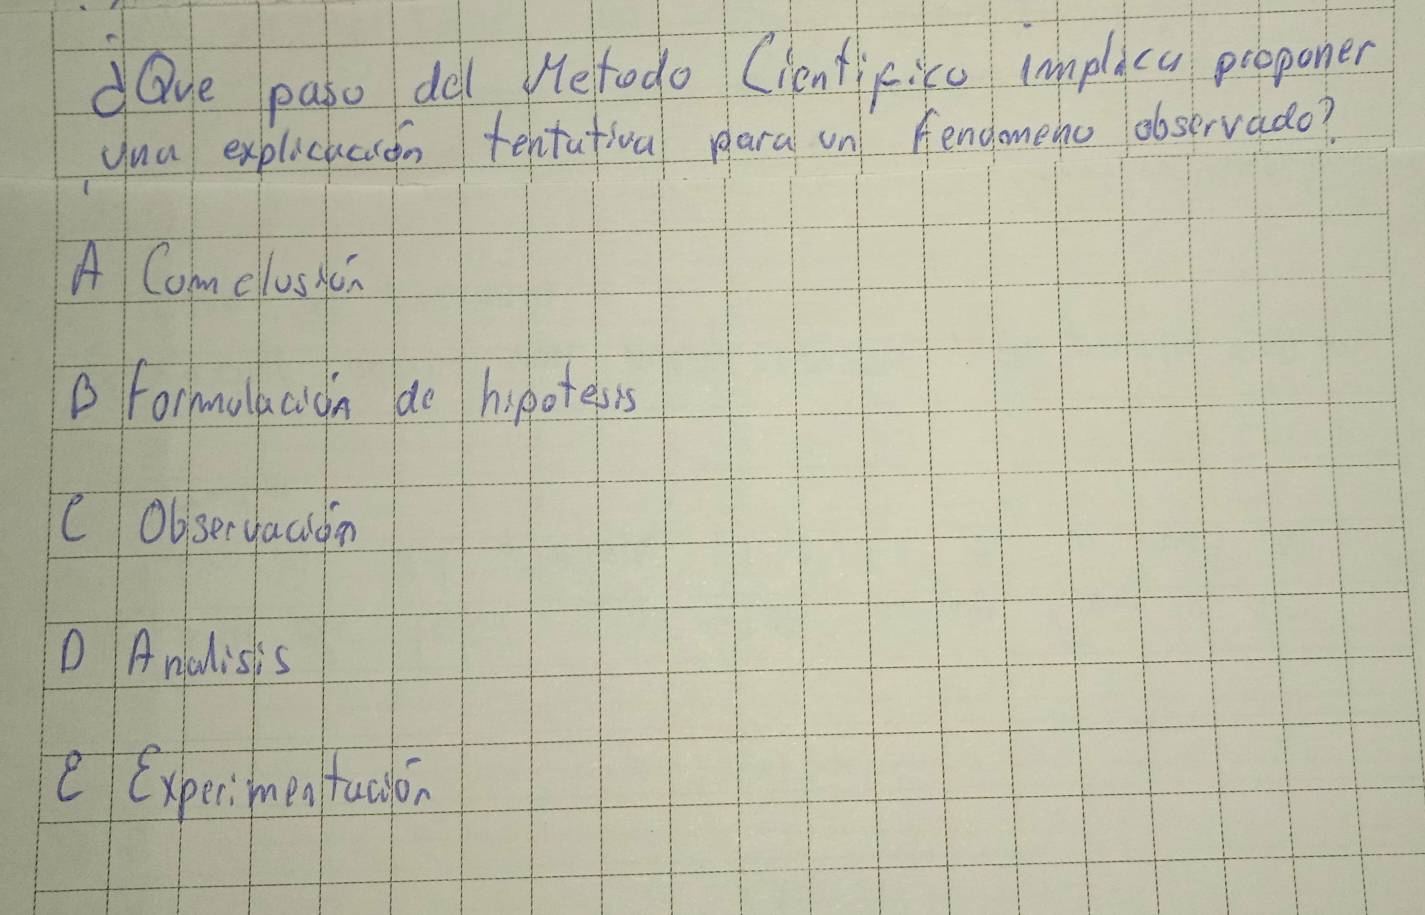 ¿Que paso del Metodo Cientifico implica proponer
una explicación tentativa para un fenomeno observado?
A Comclusión
B Formulación de hipotesis
C Observación
D Analisis
E Experimentación